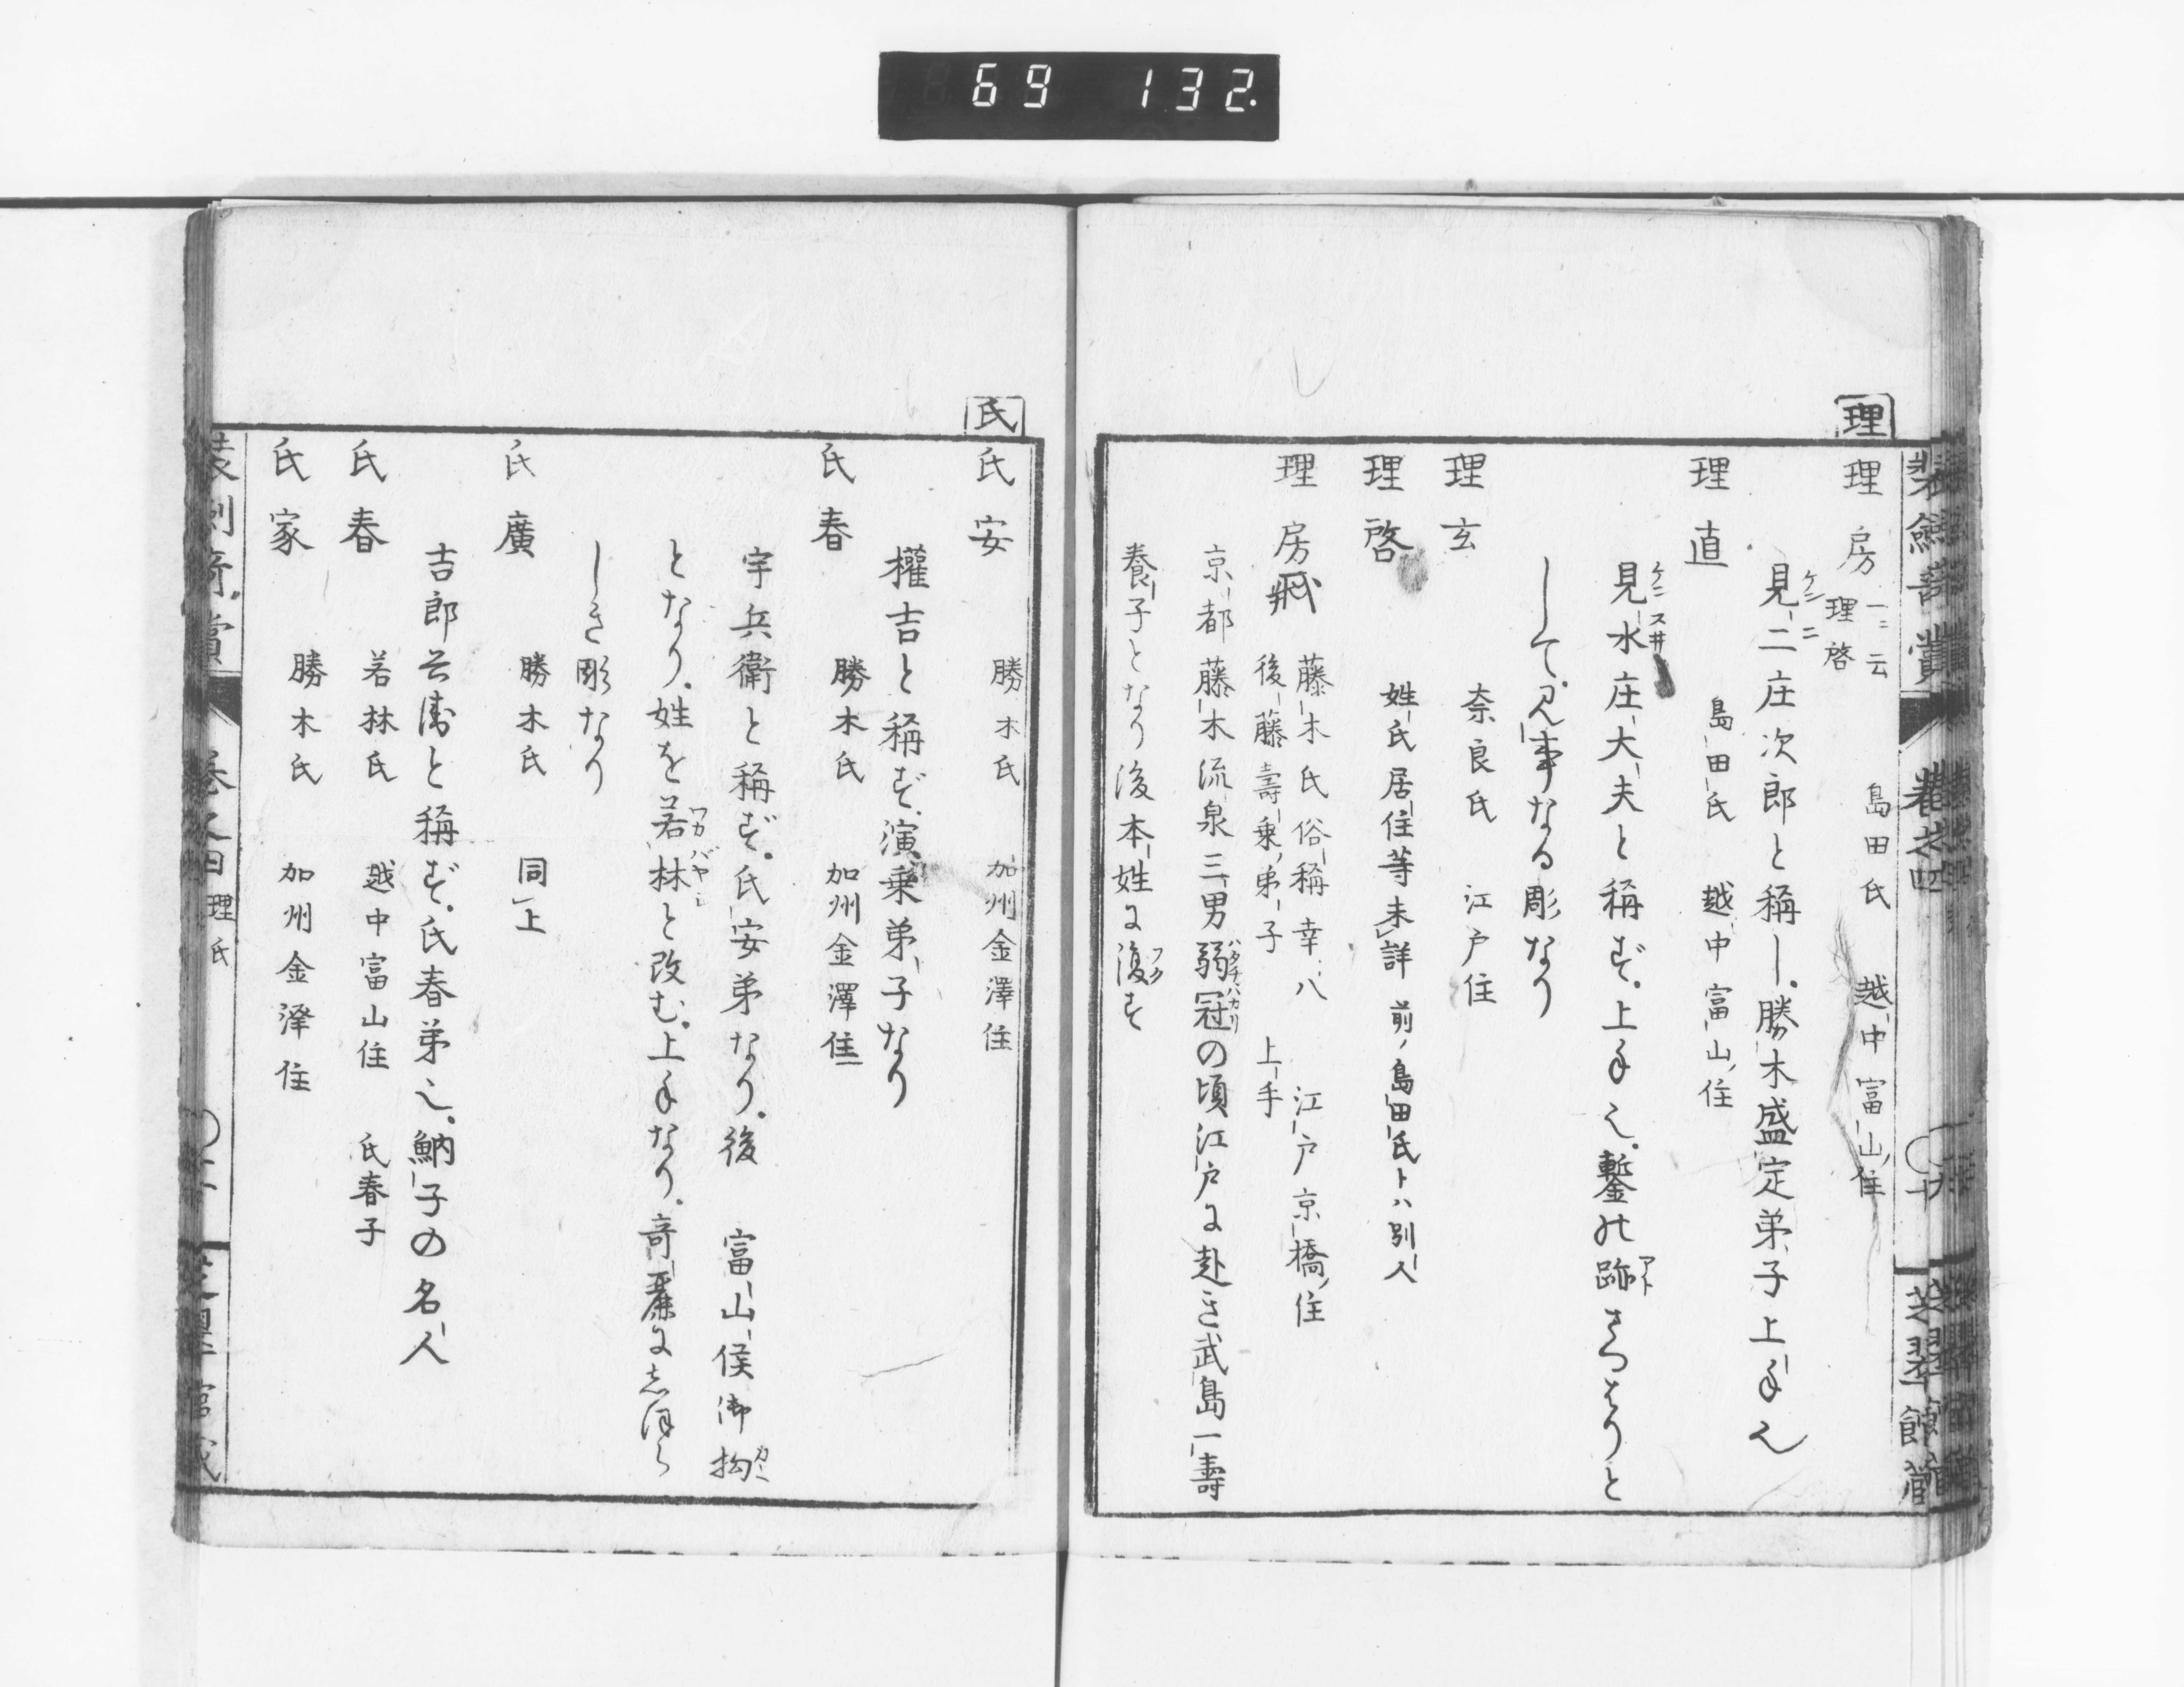 69 132.
理
理房 一ニ云理啓 島田氏 越中富山住
見二庄次郎と稱し勝木盛定弟子上手也
理直 島田氏 越中富山住
見水庄大夫と稱ず。上手也。鏨の跡きつはりと
して。見事なる彫なり
理玄 奈良氏 江戸住
理啓 姓氏居住等未詳 前ノ島田氏トハ別人
理房 藤木氏俗稱幸八 江戸京橋住
後藤壽乗弟子 上手
京都藤木流泉三男弱冠の頃江戸に赴き武島一壽
養子となり後本姓に復す
裝劔奇賞 巻之四 芝翠館藏
氏
氏安 勝木氏 加州金澤住
權吉と稱ず。演乗弟子なり
氏春 勝木氏 加州金澤住
宇兵衛と稱ず。氏安弟なり。後 富山侯御拘
となり。姓を若林と改む。上手なり。奇麗にしほら
しき彫なり
氏廣 勝木氏 同上
吉郎兵衛と稱ず。氏春弟也。魶子の名人
氏春 若林氏 越中富山住 氏春子
氏家 勝木氏 加州金澤住
裝劔奇賞 巻之四 理氏